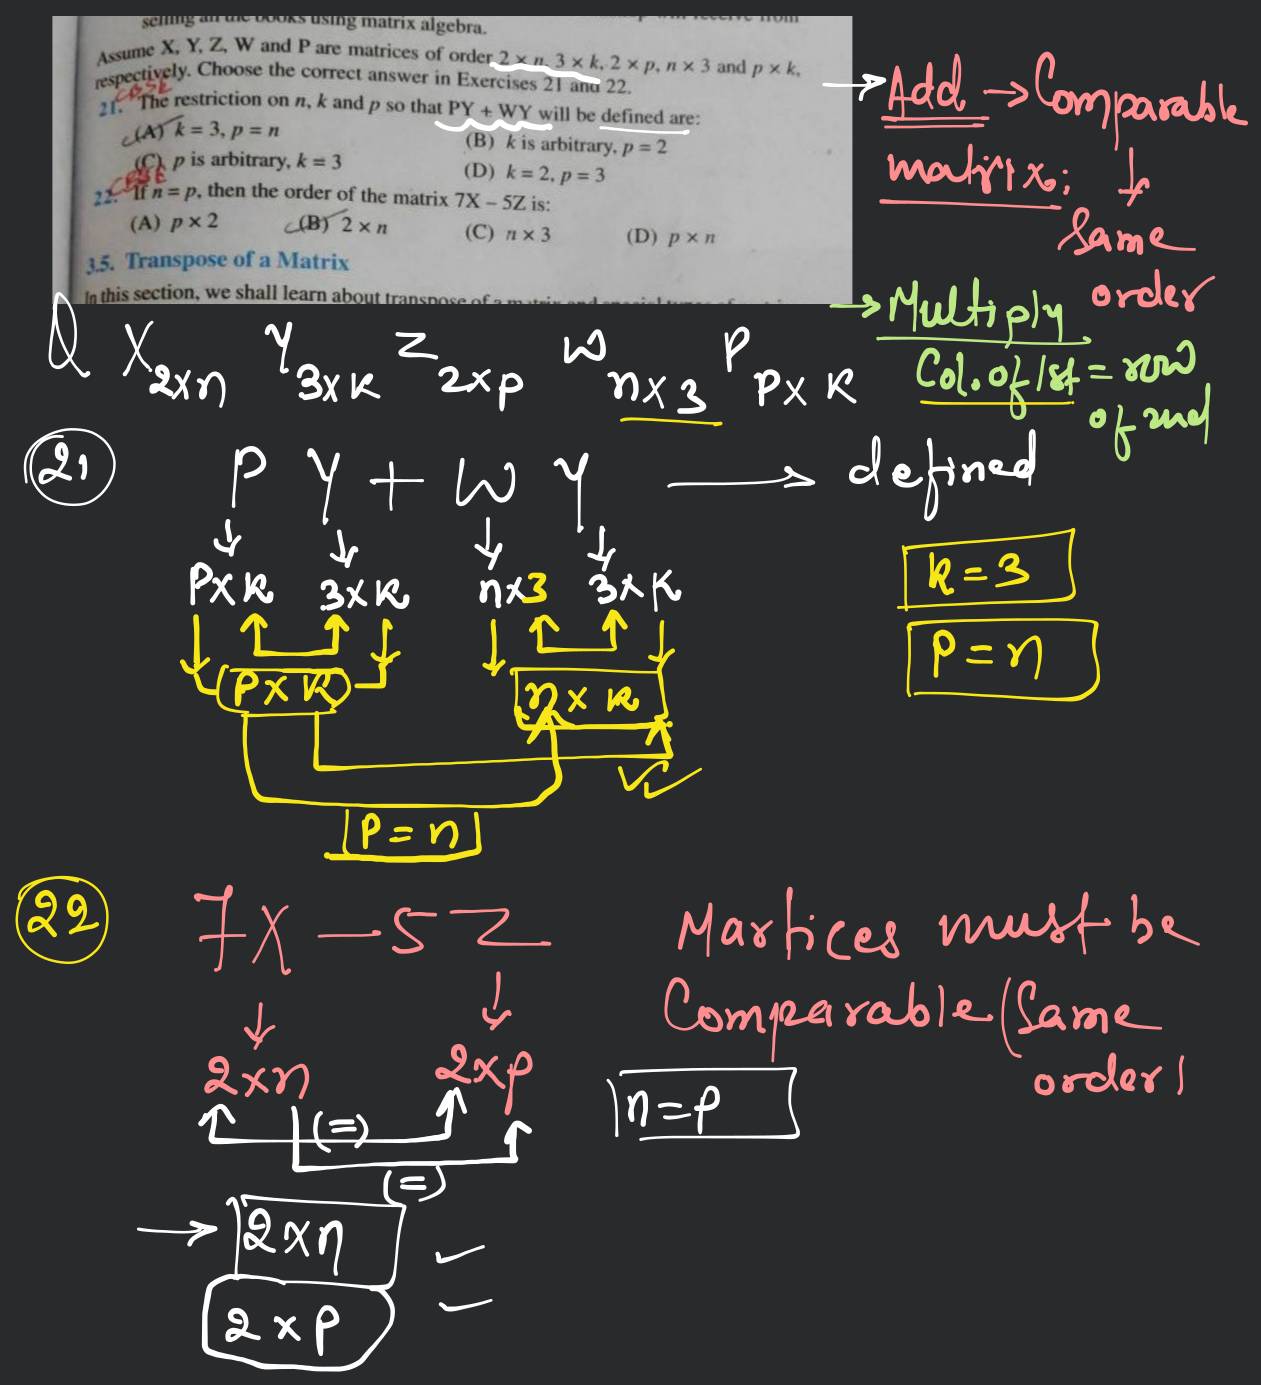 selling all the books using matrix algebra.
Assume X, Y, Z, W and P are matrices of order 2 × n, 3 × k, 2 × p, n × 3 and p × k,
respectively. Choose the correct answer in Exercises 21 and 22.
CBSE
21. The restriction on n, k and p so that PY + WY will be defined are:
(A) k = 3, p = n
(B) k is arbitrary, p = 2
(C) p is arbitrary, k = 3
(D) k = 2, p = 3
CBSE
22. If n = p, then the order of the matrix 7X – 5Z is:
(A) p × 2
(B) 2 × n
(C) n × 3
(D) p × n
3.5. Transpose of a Matrix
In this section, we shall learn about transpose of a matrix and special types of
→ Add → Comparable
matrix; ↓
Same
order
→ Multiply
Col. of 1st = row
of 2nd
Q X 2xn Y 3xK Z 2xp W nx3 P PxK
21 P Y + W Y → defined
↓ ↓ ↓ ↓
PxK 3xK nx3 3xK
k = 3
(PxK) nxk
P = n
P = n
22 7X – 5Z
Martices must be
Comparable (Same
order)
↓ ↓
2xn 2xp
n = p
(=)
(=)
→ 2xn
2xp